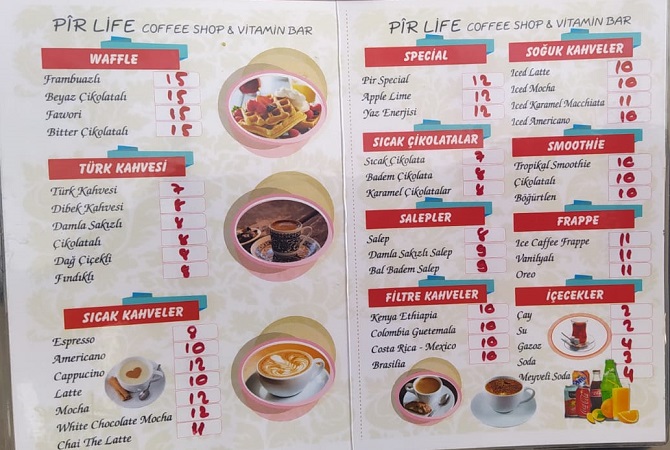 PÎR LİFE COFFEE SHOP & VİTAMİN BAR
WAFFLE
Frambuazlı 15
Beyaz Çikolatalı 15
Fawori 15
Bitter Çikolatalı 15
TÜRK KAHVESİ
Türk Kahvesi 7
Dibek Kahvesi 8
Damla Sakızlı 8
Çikolatalı 8
Dağ Çiçekli 8
Fındıklı 8
SICAK KAHVELER
Espresso 9
Americano 10
Cappucino 12
Latte 10
Mocha 12
White Chocolate Mocha 12
Chai The Latte 11
PÎR LİFE COFFEE SHOP & VİTAMİN BAR
SPECİAL
Pir Special 12
Apple Lime 12
Yaz Enerjisi 12
SICAK ÇİKOLATALAR
Sıcak Çikolata 7
Badem Çikolata 8
Karamel Çikolatalar 8
SALEPLER
Salep 8
Damla Sakızlı Salep 9
Bal Badem Salep 9
FİLTRE KAHVELER
Kenya Ethiapia 10
Colombia Guetemala 10
Costa Rica - Mexico 10
Brasilia 10
SOĞUK KAHVELER
Iced Latte 10
Iced Mocha 10
Iced Karamel Macchiata 11
Iced Americano 10
SMOOTHİE
Tropikal Smoothie 10
Çikolatalı 10
Böğürtlen 10
FRAPPE
Ice Caffee Frappe 11
Vanilyalı 11
Oreo 11
İÇECEKLER
Çay 2
Su 2
Gazoz 4
Soda 3
Meyveli Soda 4